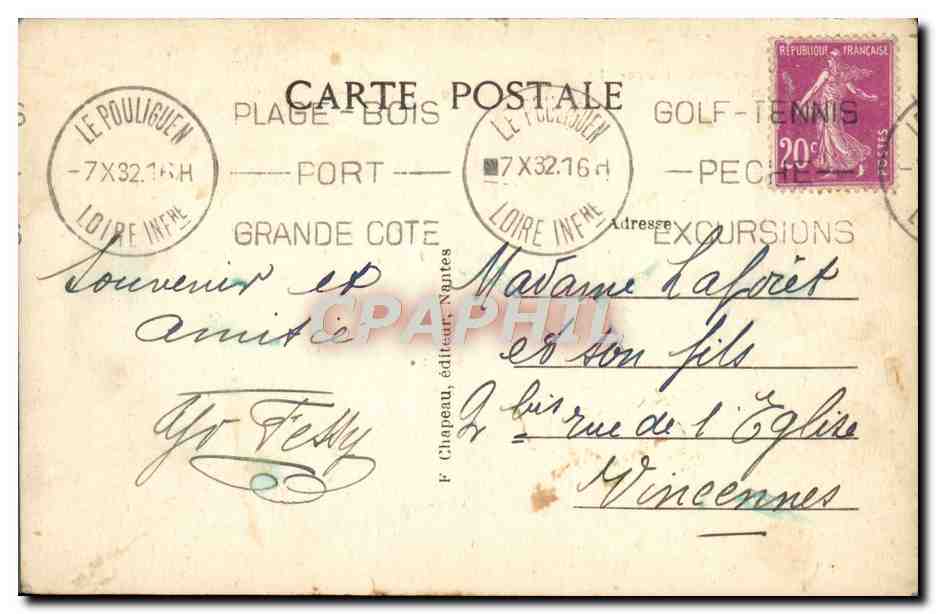 CARTE POSTALE
RÉPUBLIQUE FRANÇAISE
20c
POSTES
LE POULIGUEN
7 X 32.16 H
LOIRE INFRE
PLAGE - BOIS
PORT
GRANDE COTE
LE POULIGUEN
7 X 32.16 H
LOIRE INFRE
GOLF - TENNIS
PECHE
EXCURSIONS
Adresse
Souvenir et
amitié
Yo Fessy
F Chapeau, éditeur, Nantes
Madame Laforêt
et son fils
2 bis rue de l'Eglise
Vincennes
CPAPHIL